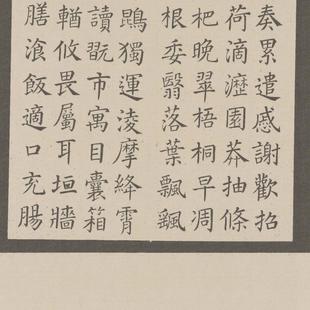 奏累遣慼謝歡招
荷滴瀝園莽抽條
杷晚翠梧桐早凋
根委翳落葉飄颻
鵾獨運淩摩絳霄
讀翫市寓目囊箱
輶攸畏屬耳垣牆
膳湌飯適口充腸